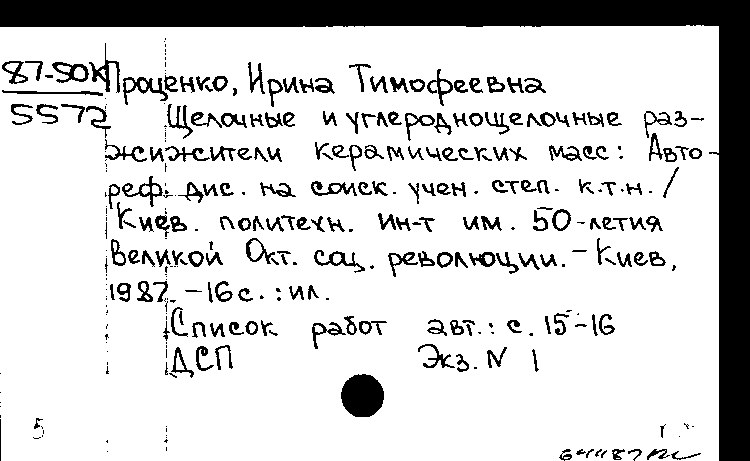 87-50К Проценко, Ирина Тимофеевна
5572 Щелочные и углероднощелочные раз-
жижители керамических масс: Авто-
реф. дис. на соиск. учен. степ. к.т.н. /
Киев. политехн. ин-т им. 50-летия
Великой Окт. соц. революции. - Киев,
1987. - 16 с. : ил.
Список работ авт.: с. 15-16
ДСП Экз. N 1
5